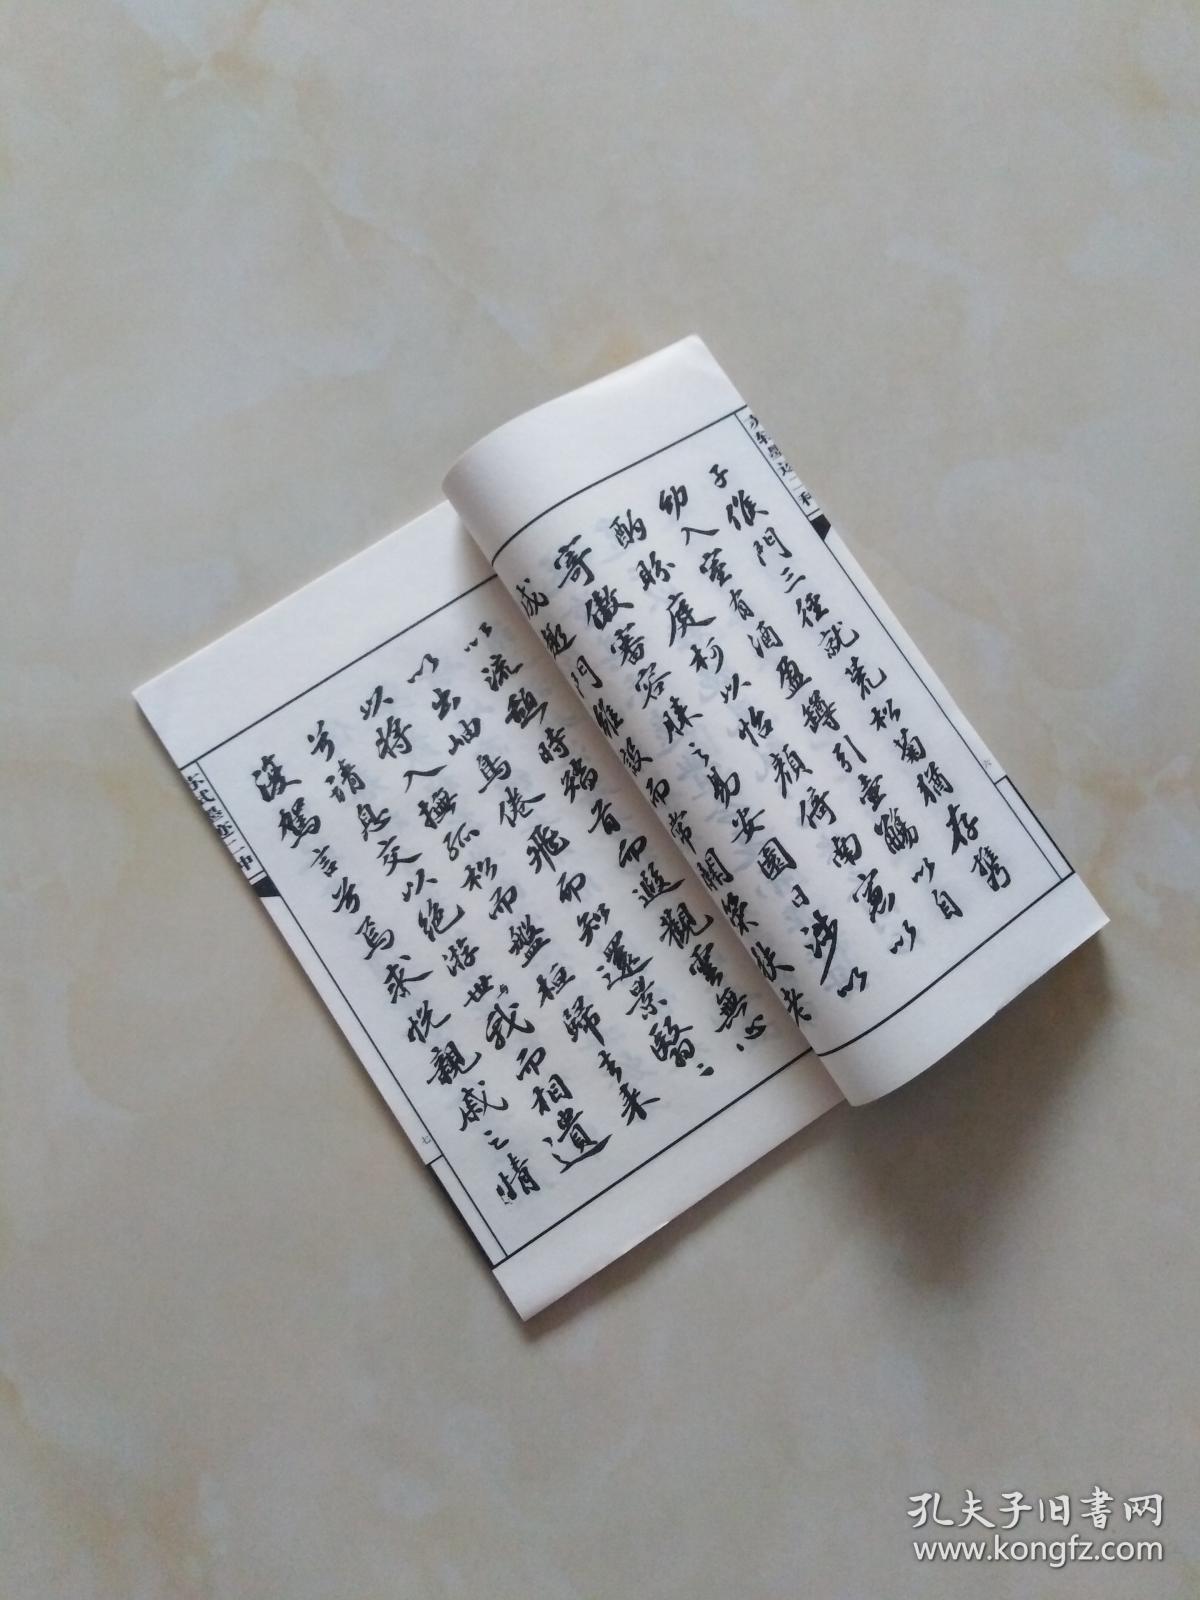 苏轼墨迹二种
六
子候門三徑就荒松菊猶存攜
幼入室有酒盈罇引壺觴以自
酌眄庭柯以怡顏倚南窗以
寄傲審容膝之易安園日涉以
成趣門雖設而常關策扶老
以流憩時矯首而遐觀雲無心
以出岫鳥倦飛而知還景翳〻
以將入撫孤松而盤桓歸去来
兮請息交以絕游世與我而相遺
復駕言兮焉求悅親戚之情
苏轼墨迹二种
七
孔夫子旧书网
www.kongfz.com